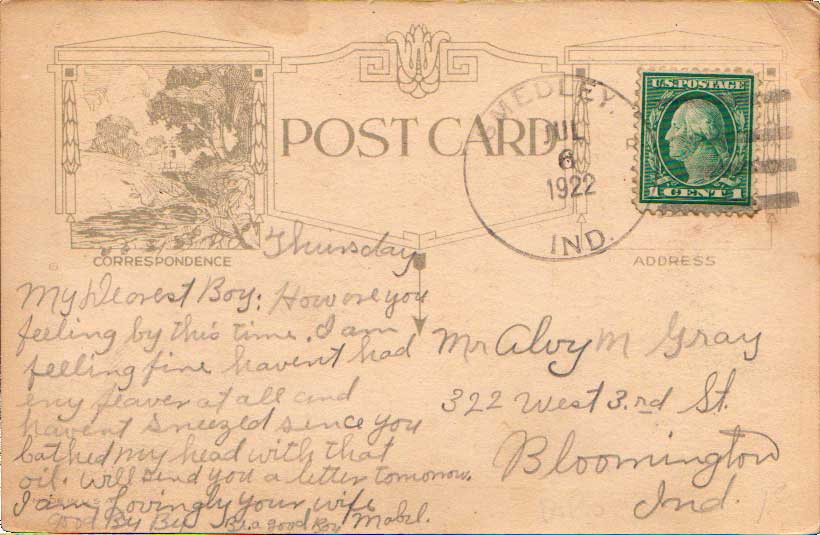 POST CARD
SMEDLEY.
JUL
6
1922
IND.
U.S. POSTAGE
1 CENT 1
CORRESPONDENCE
ADDRESS
Thursday
My Dearest Boy: How are you
feeling by this time. I am
feeling fine havent had
eny feaver at all and
havent sneezed since you
bathed my head with that
oil. will send you a letter tomorrow.
I am Lovingly your wife
Good By By Be a good Boy Mabel.
Mr Alvy M Gray
322 West 3.rd St.
Bloomington
Ind.